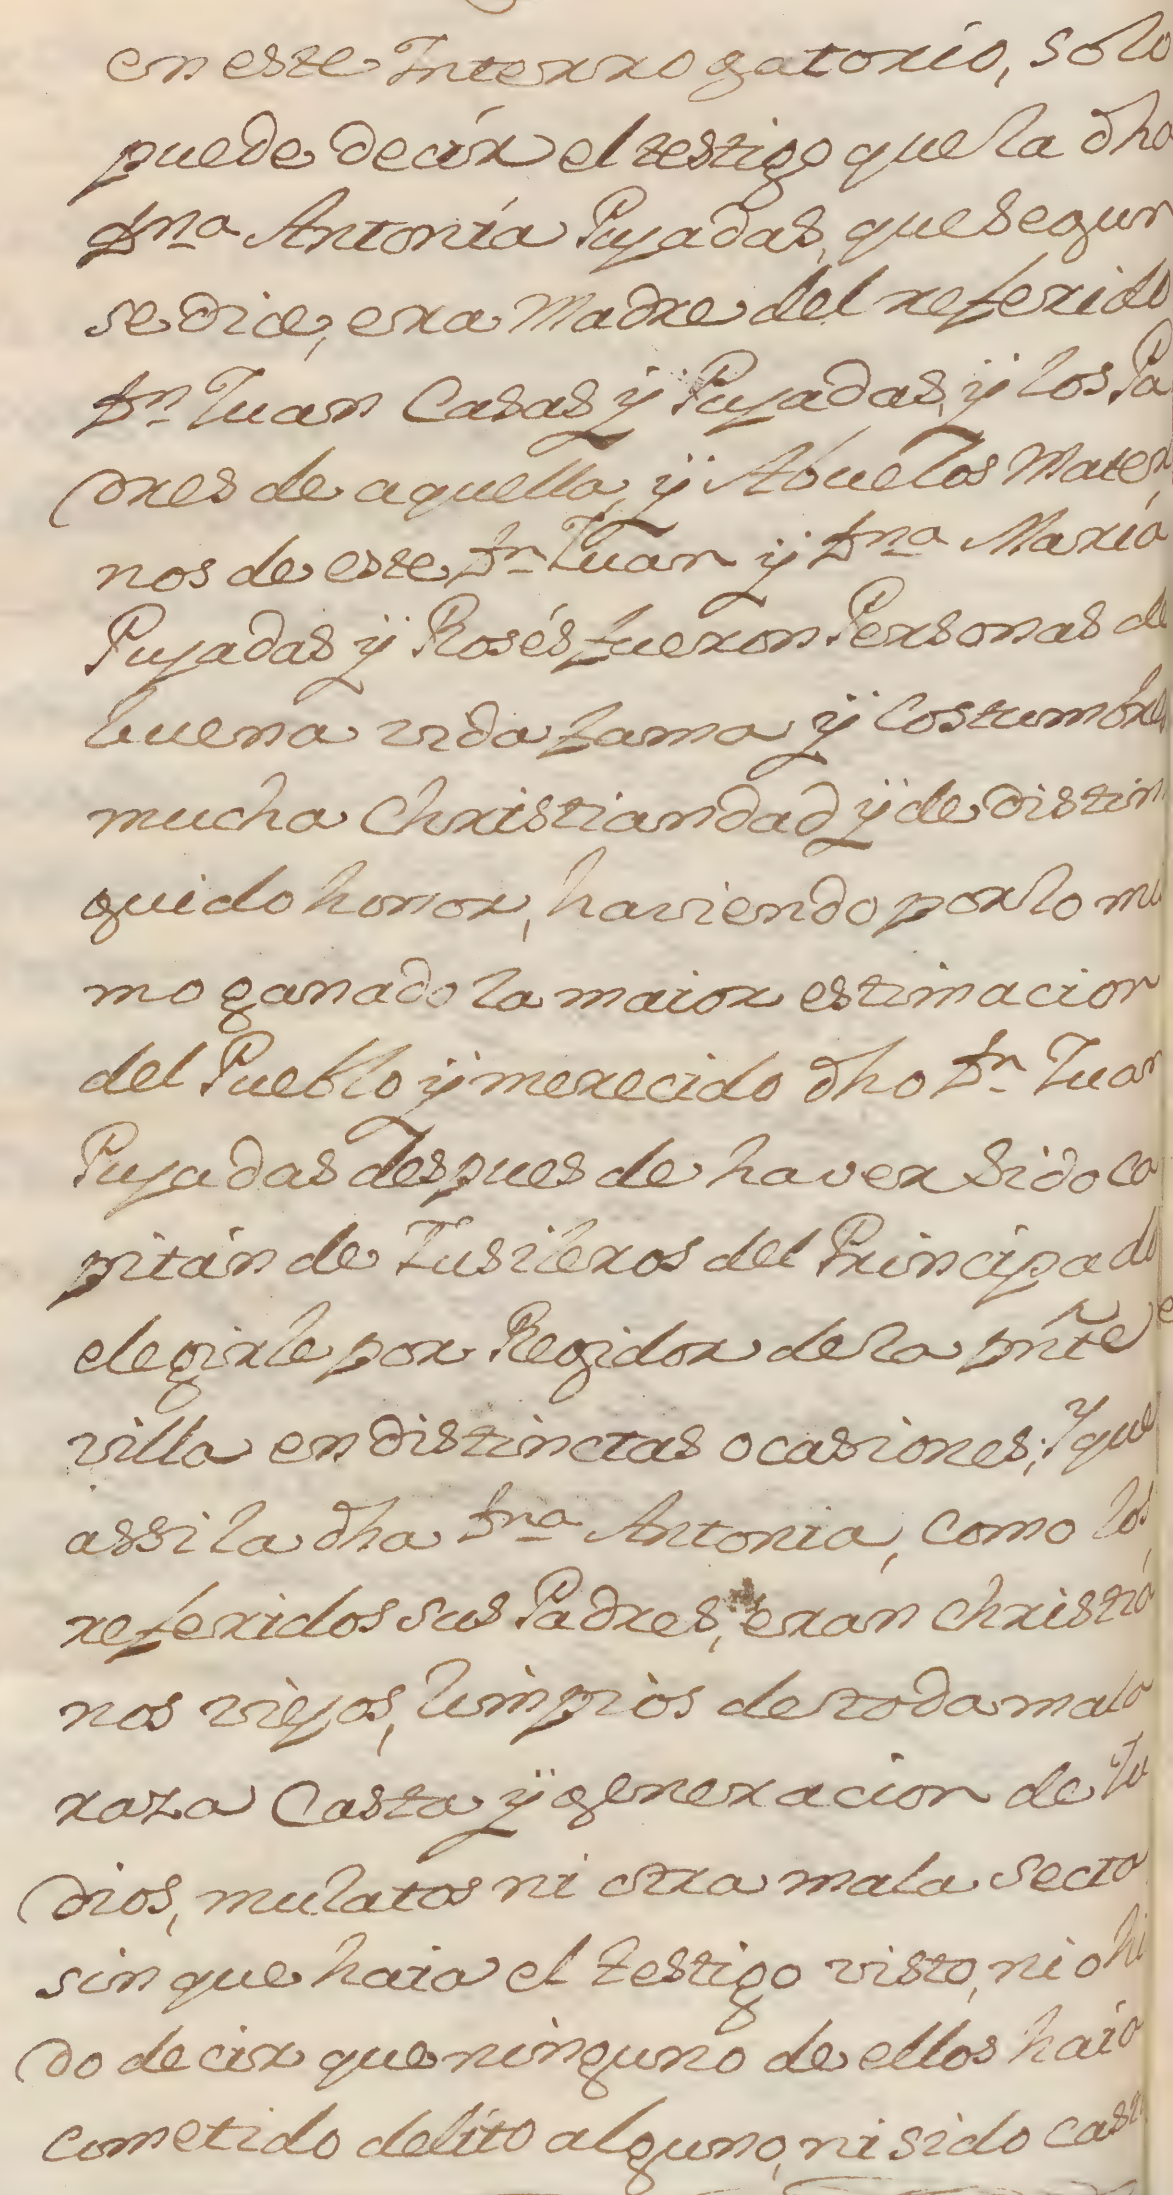 en este Interrogatorio, solo
puede decir el testigo que la dha
Dna Antonia Pujadas, que segun
se dice, era Madre del referido
Dn Juan Casas ÿ Pujadas, ÿ los Pa
dres de aquella, ÿ Abuelos Mater
nos de este Dn Juan ÿ Dna Maria
Pujadas ÿ Rosés fueron Personas de
buena vida fama ÿ costumbres
mucha Christiandad ÿ de distin
guido honor, haviendo por lo mis
mo ganado la maior estimacion
del Pueblo ÿ merecido dho Dn Juan
Pujadas despues de haver sido ca
pitán de Fusileros del Principado
elegirle por Regidor de la pñte
villa en distinctas ocasiones; Y que
assi la dha Dna Antonia, como los
referidos sus Padres, eran christia
nos viejos, limpios de toda mala
raza Casta ÿ generacion de Ju
dios, mulatos ni otra mala secta
sin que haia el testigo visto, ni ohi
do decir que ninguno de ellos haia
cometido delito alguno, ni sido casti